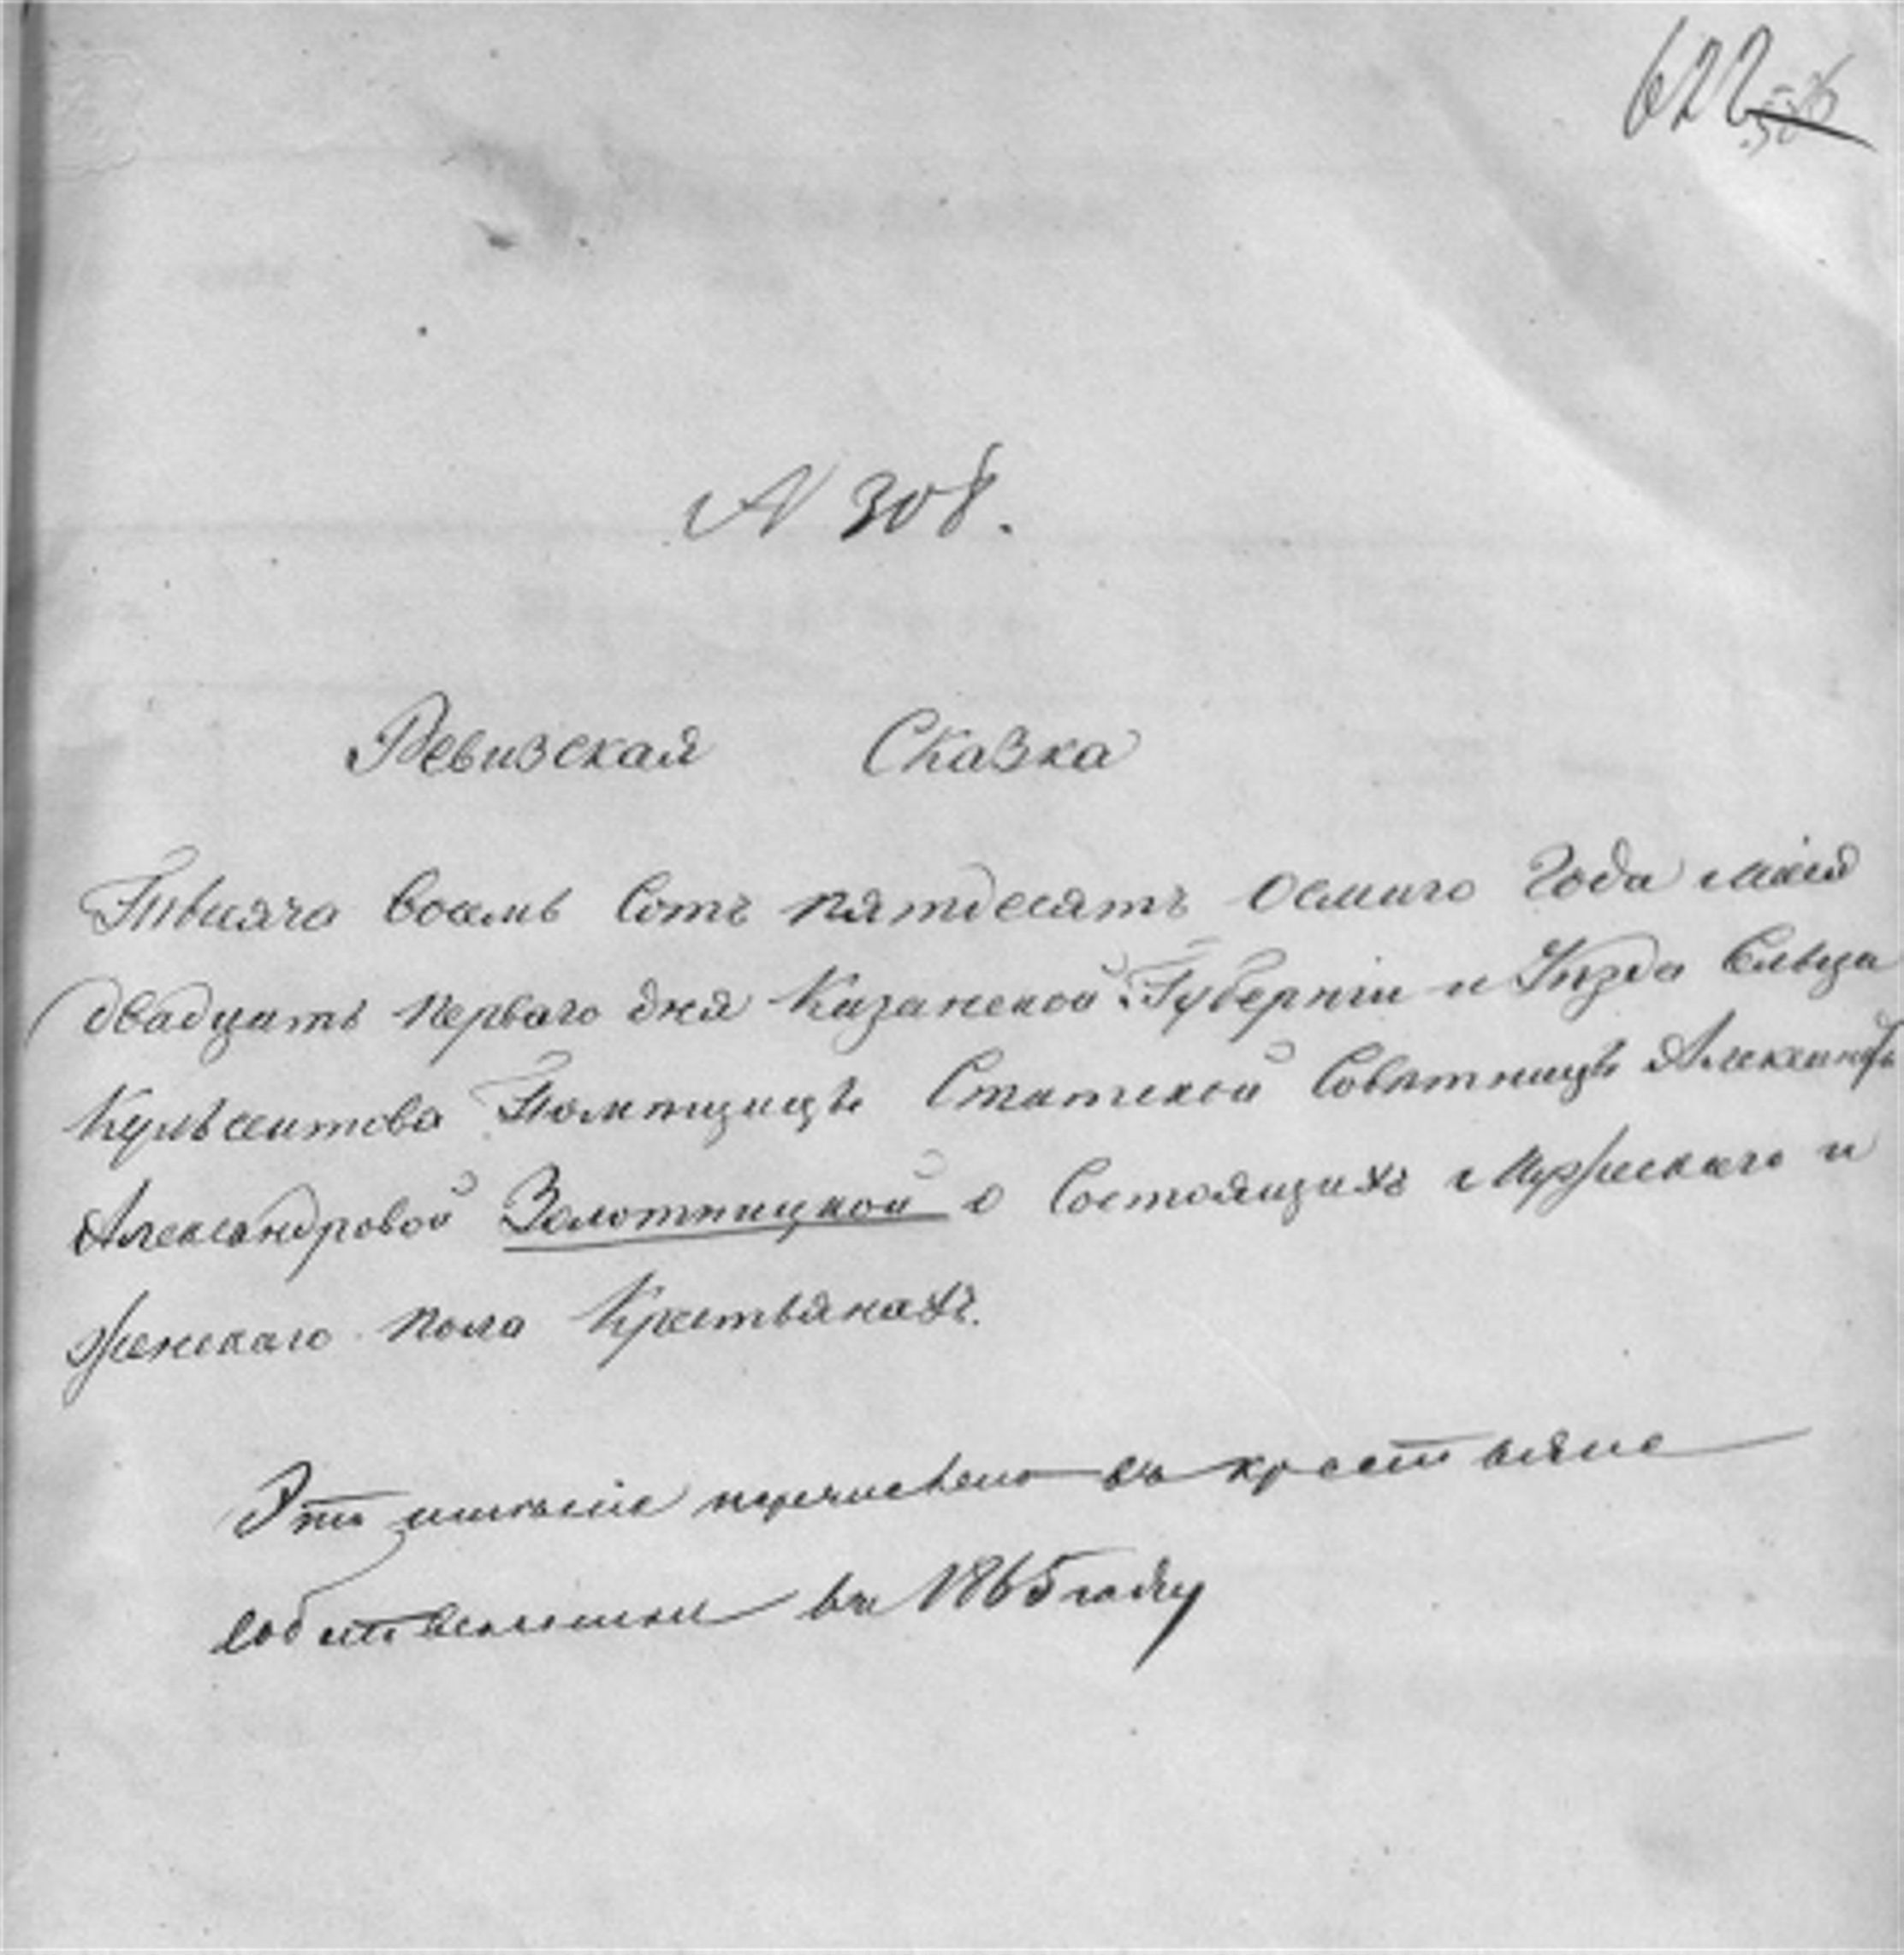 622 586
N 308.
Ревизская Сказка
Тысяча восемь сотъ пятдесятъ осмаго года маія
двадцать перваго дня Казанской Губерніи и Уѣзда Сельца
Кульсеитова Помѣщицѣ Статской Совѣтницѣ Александрѣ
Александровой Золотницкой о состоящихъ мужескаго и
женскаго пола крестьянахъ.
Это имѣніе перечислено въ крестьяне
собственники въ 1865 году